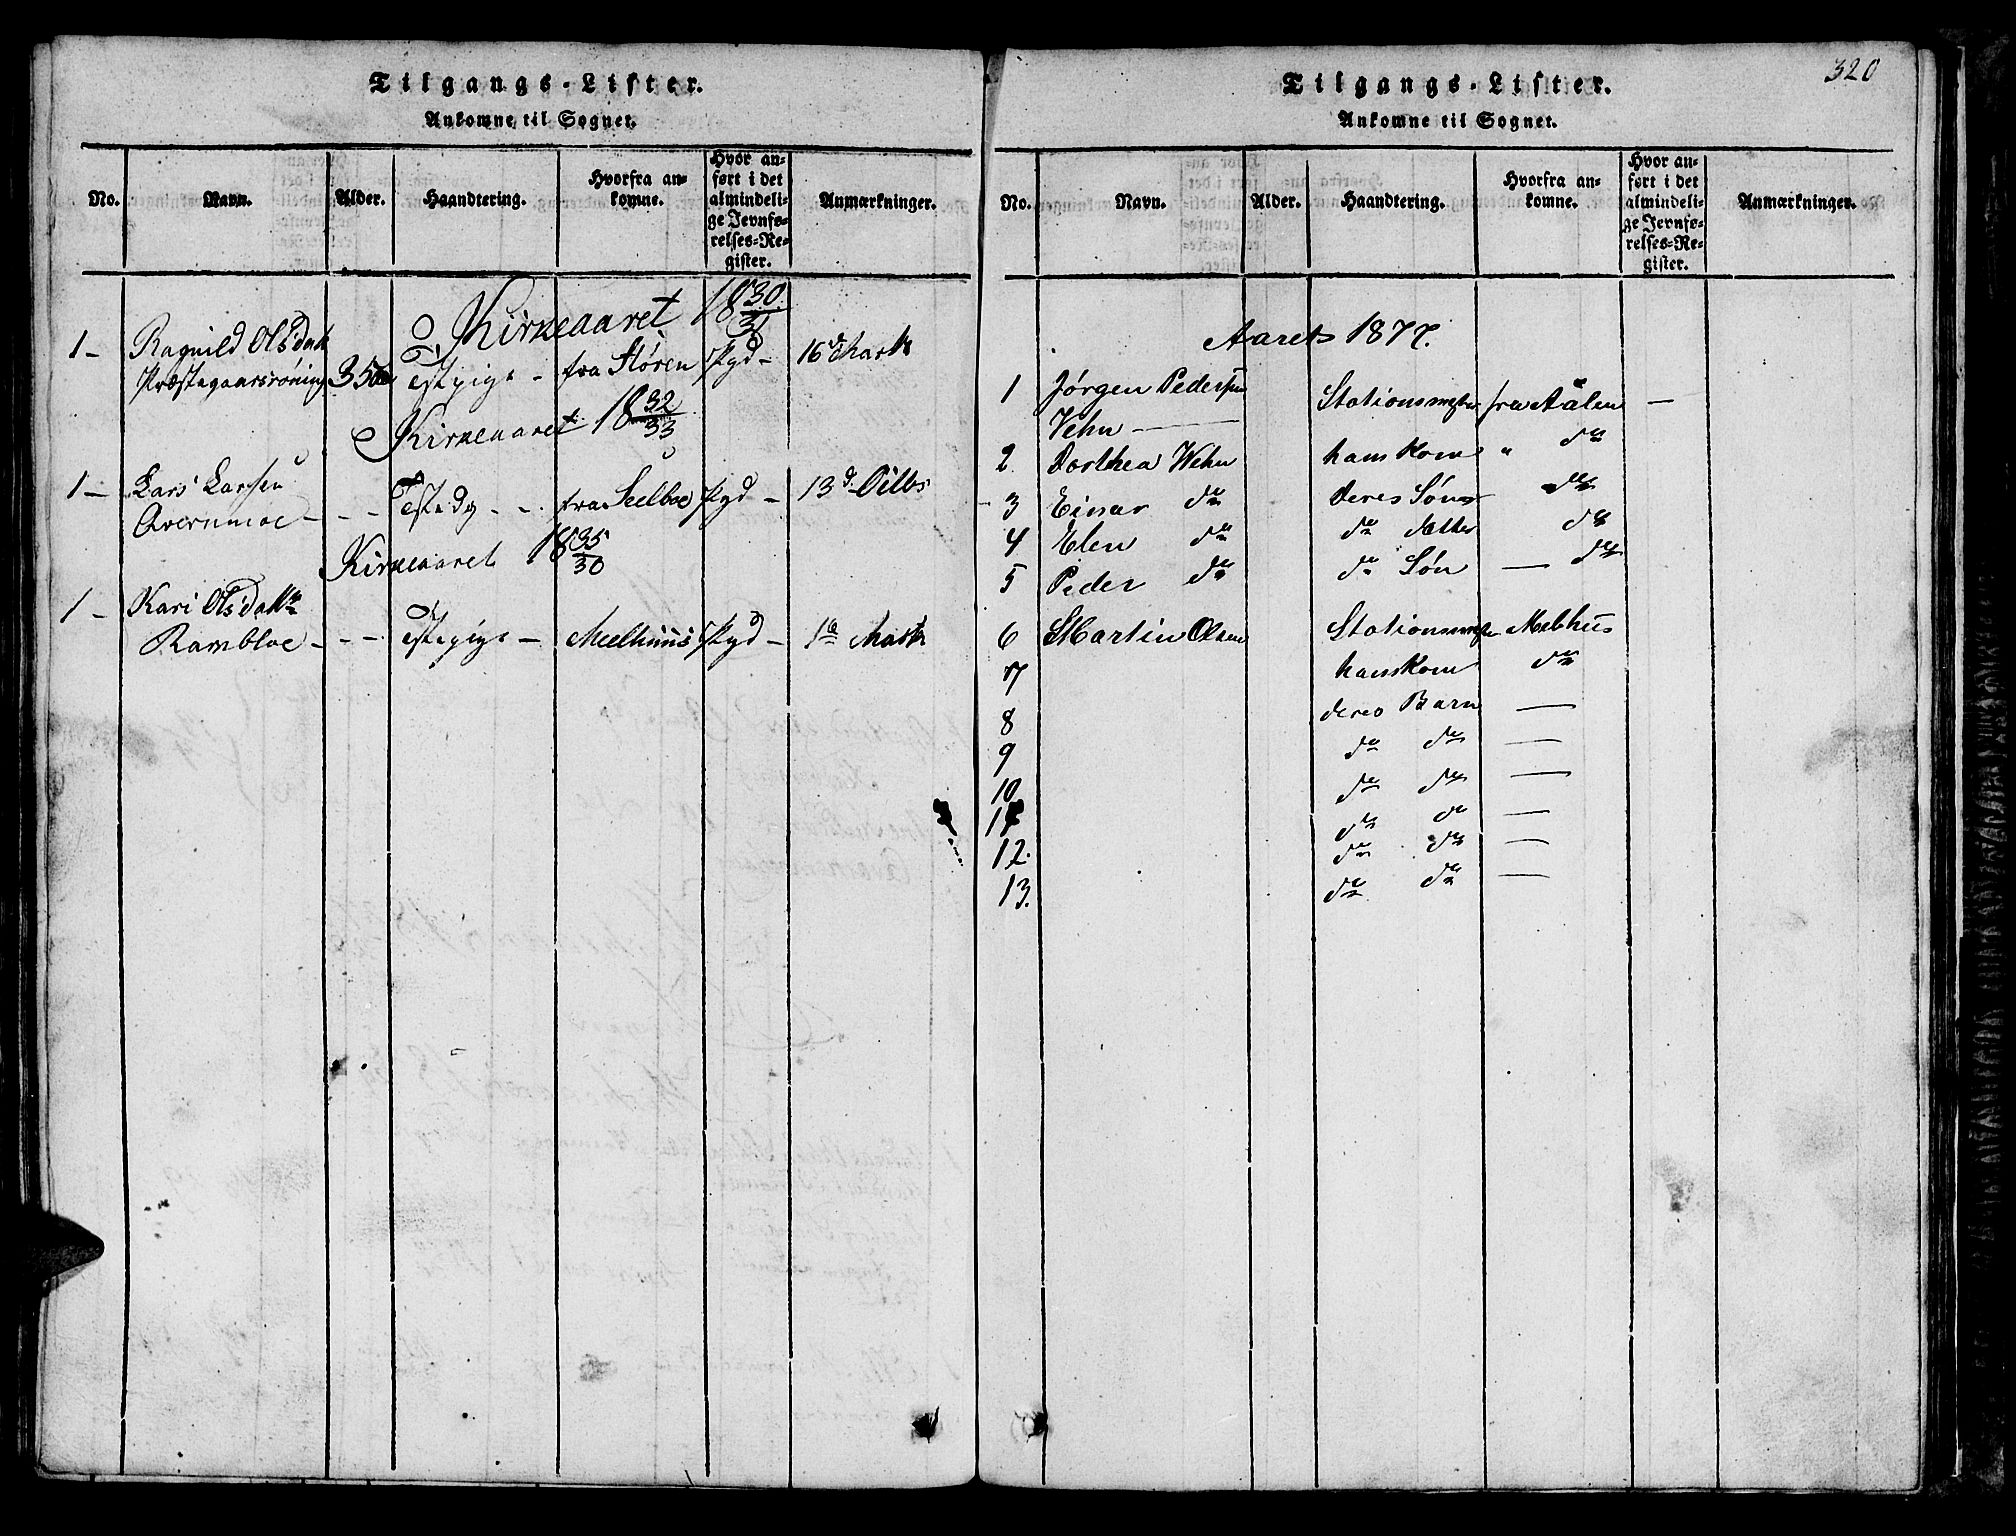 Tilgangs-Lister.
Ankomne til Sognet.
No. Navn. Alder. Haandtering. Hvorfra ankomne. Hvor anført i det almindelige Jevnførelses-Register. Anmærkninger.
Kirkeaaret 1830/31
1 - Ragnild Olsdatt
Præstegaarsrøning 35 Testpige - fra Støren 
Kirkeaaret 1832/33
1 - Lars Larsen
Qvernmoe - - - fra Seelboe
Kirkeaaret 1835/36
1 - Kari Olsdattr
Rambloe - - - Testepige - Meelhuus
320
Tilgangs-Lister.
Ankomne til Sognet.
No. Navn. Alder. Haandtering. Hvorfra ankomne. Hvor anført i det almindelige Jevnførelses-Register. Anmærkninger.
Aaret 1877.
1 Jørgen Pedersen Stationsmester fra Aålen -
Vehn
2 Dorthea Wehn hans Kone " do
3 Einar do deres Søn do
4 Elen do do datter do
5 Peder do do Søn - do
6 Martin Olsen Stationsmester Melhus
7 hans Kone do
8 deres Barn -
9 do do -
10 do do -
11 do do -
12. do do -
13. do do -